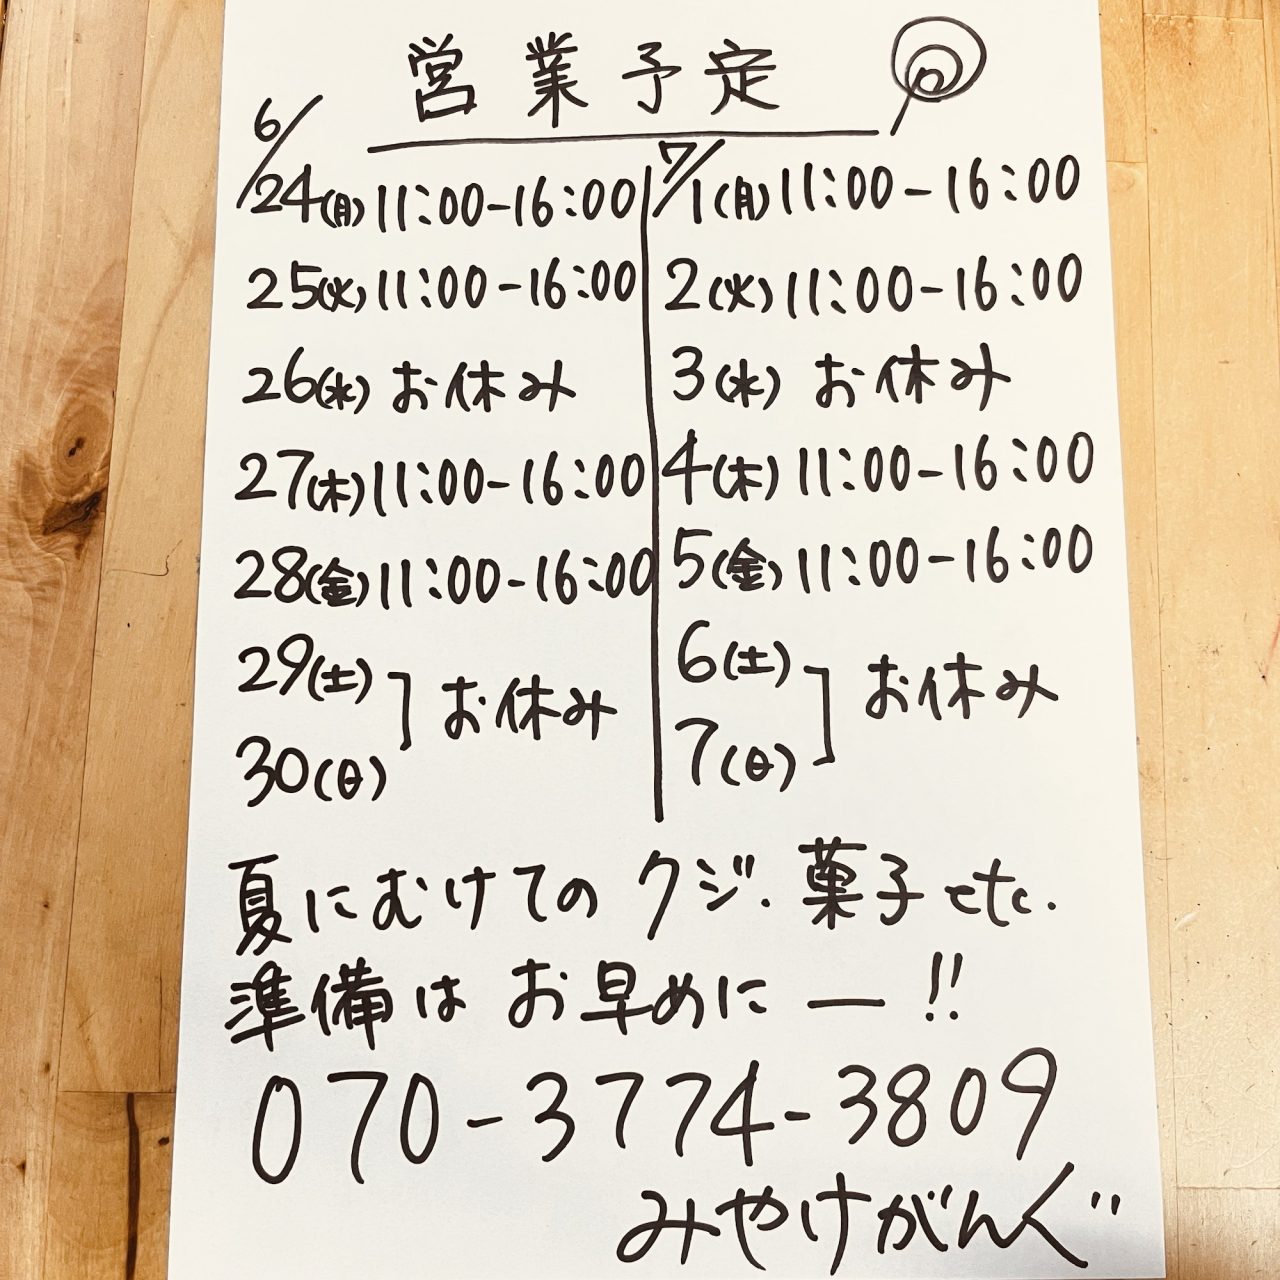 営業予定
6/24(月) 11:00-16:00
25(火) 11:00-16:00
26(水) お休み
27(木) 11:00-16:00
28(金) 11:00-16:00
29(土)
30(日)
お休み
7/1(月) 11:00-16:00
2(火) 11:00-16:00
3(水) お休み
4(木) 11:00-16:00
5(金) 11:00-16:00
6(土)
7(日)
お休み
夏にむけての クジ.菓子etc.
準備は お早めにー!!
070-3774-3809
みやけがんぐ